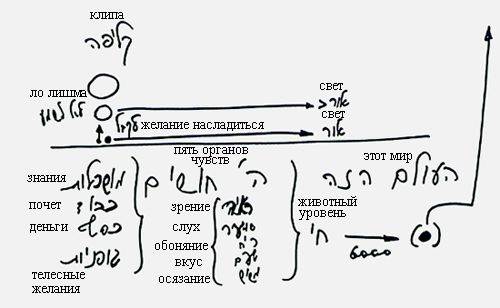 клипа
קליפה
ло лишма
לא לשמה
свет
אור
לקבל
желание насладиться
свет
אור
пять органов
чувств
этот мир
знания
מושכלות
ה' חושים
העולם הזה
почет
כבוד
зрение
ראיה
животный
уровень
деньги
כסף
слух
שמיעה
חי
6000
обоняние
ריח
גופניות
вкус
טעם
телесные
желания
осязание
מישוש